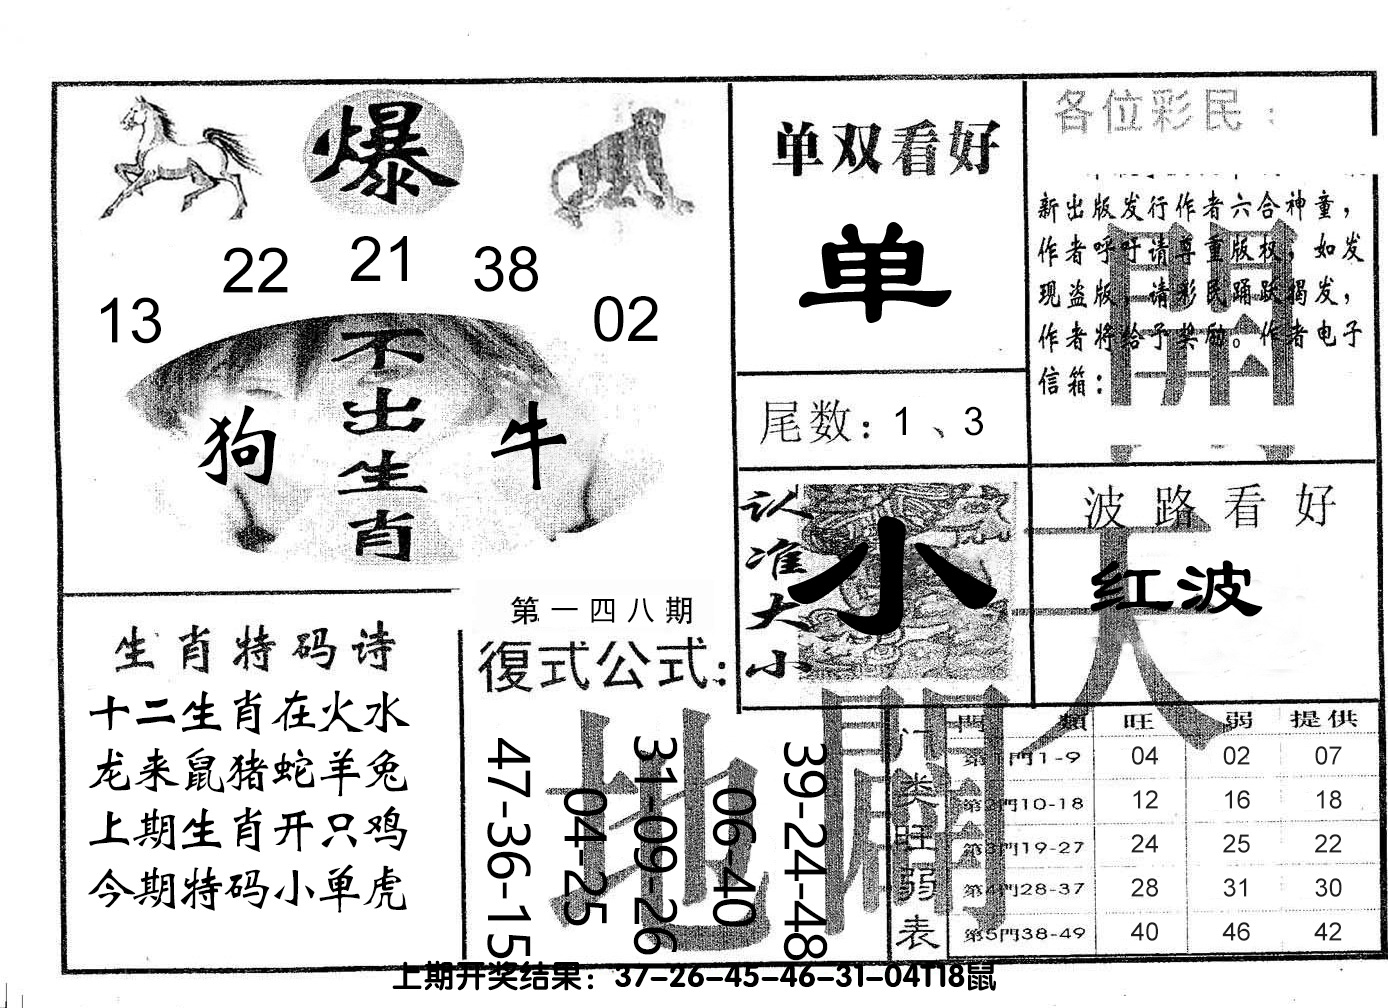 爆
13 22 21 38 02
不出生肖
狗 牛
生肖特码诗
十二生肖在火水
龙来鼠猪蛇羊兔
上期生肖开只鸡
今期特码小单虎
第一四八期
復式公式:
47-36-15
04-25
31-09-26
06-40
39-24-48
单双看好
单
尾数: 1、3
认准大小
小
各位彩民:
新出版发行作者六合神童，
作者呼吁请尊重版权，如发
现盗版，请彩民踊跃揭发，
作者将给予奖励。作者电子
信箱:
波路看好
红波
天
地
開
门类旺弱表
門類 旺 弱 提供
第1門1-9 04 02 07
第2門10-18 12 16 18
第3門19-27 24 25 22
第4門28-37 28 31 30
第5門38-49 40 46 42
上期开奖结果：37-26-45-46-31-04T18鼠